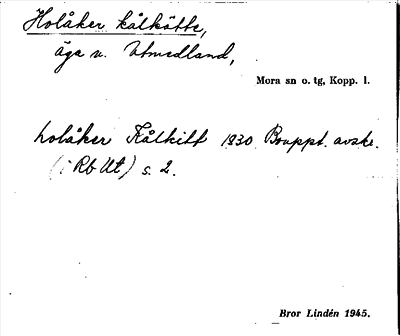 Holåker kålkätte,
äga v. Utmedland,
Mora sn o. tg, Kopp. l.
holåker Kålkitt 1830 Bouppt. avskr.
(i Rb Ut) s. 2.
Bror Lindén 1945.